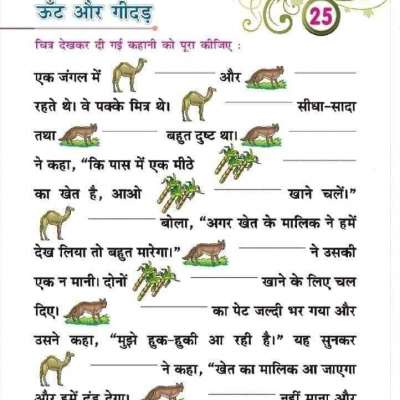 ऊँट और गीदड़
25
चित्र देखकर दी गई कहानी को पूरा कीजिए :
एक जंगल में और
रहते थे। वे पक्के मित्र थे। सीधा-सादा
तथा बहुत दुष्ट था।
ने कहा, “कि पास में एक मीठे
का खेत है, आओ खाने चलें।”
बोला, “अगर खेत के मालिक ने हमें
देख लिया तो बहुत मारेगा।” ने उसकी
एक न मानी। दोनों खाने के लिए चल
दिए। का पेट जल्दी भर गया और
उसने कहा, “मुझे हुक-हुकी आ रही है।” यह सुनकर
ने कहा, “खेत का मालिक आ जाएगा
और हमें दंड देगा। नहीं माना और